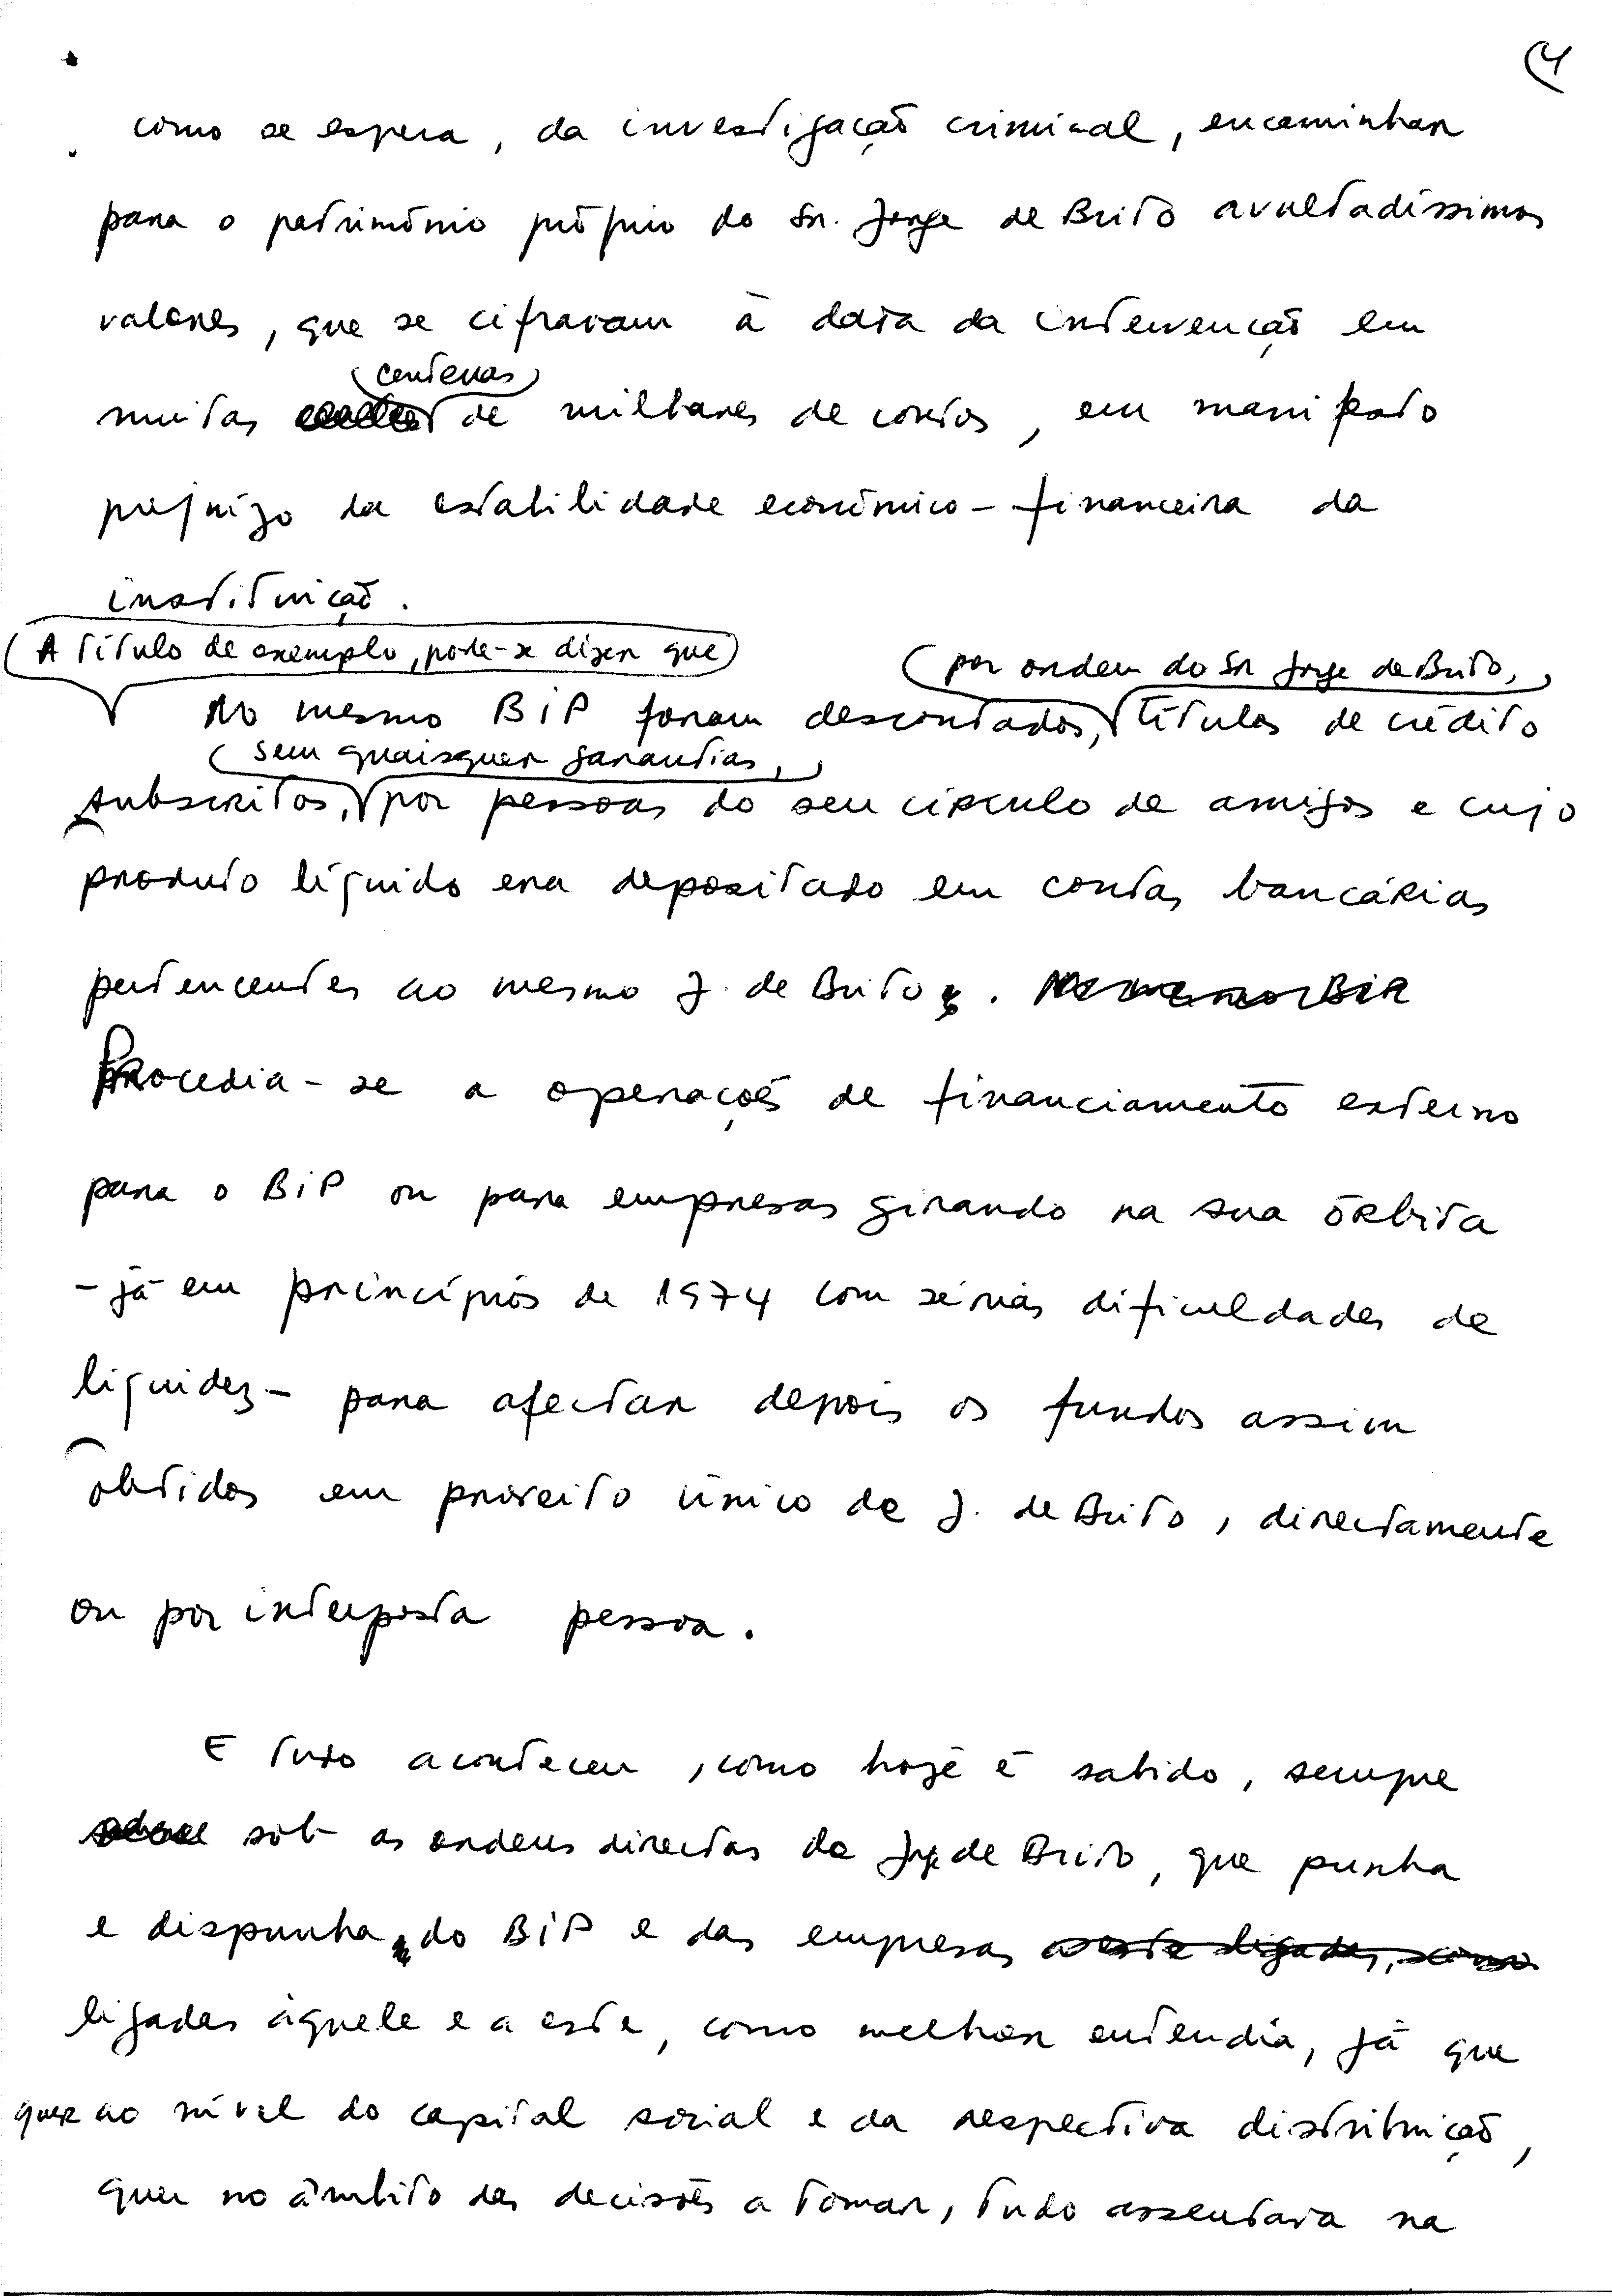 (4
como se espera, da investigação criminal, encaminhar
para o património próprio do Sr. Jorge de Brito avultadíssimos
valores, que se cifravam à data da intervenção em
centenas
muitas de milhares de contos, em manifesto
prejuízo da estabilidade económico-financeira da
instituição.
A título de exemplo, pode-se dizer que
por ordem do Sr Jorge de Brito,
No mesmo BIP foram descontados, títulos de crédito
sem quaisquer garantias,
subscritos, por pessoas do seu círculo de amigos e cujo
produto líquido era depositado em contas bancárias
pertencentes ao mesmo J. de Brito. No mesmo BIP
Procedia-se a operações de financiamento externo
para o BIP ou para empresas girando na sua órbita
- já em princípios de 1974 com sérias dificuldades de
liquidez - para afectar depois os fundos assim
obtidos em proveito único de J. de Brito, directamente
ou por interposta pessoa.
E tudo aconteceu, como hoje é sabido, sempre
sob as ordens directas de Jorge de Brito, que punha
e dispunha do BIP e das empresas a este ligadas, como
ligadas àquele e a este, como melhor entendia, já que
quer ao nível do capital social e da respectiva distribuição,
quer no âmbito das decisões a tomar, tudo assentava na